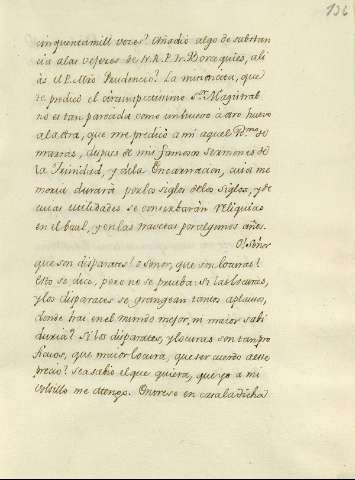 136
cinquentamill vezes? Añadió algo de substan
cia a las vejezes de N. R. P. Fr. Borceguies, ali
ás el P. Mro Prudencio? La
te predicó el circunspectissimo Sr. Magistral
no es tan parecida como un huevo a otro huevo
a la otra, que me predicó a mi aquel Rmo. de
marras, despues de mis famosos sermones de
la Trinidad, y de la Encarnacion, cuia me
moria durará por los siglos de los siglos, y de
cuias utilidades se conserbarán reliquias
en el baul, y en las traveseras por algunos años.
O! Señor
que son disparates! o Señor, que son locuras!
Esto se dice, pero no se prueba. Si las locuras,
y los disparates se grangean tantos aplausos,
donde hai en el mundo mejor, ni maior sabi
duria? Si los disparates, y locuras son tan pro
ficuos, que maior locura, que ser cuerdo a esse
precio? Sea sabio el que quiera, que yo a mi
volsillo me atengo. Entrese en casa la dicha